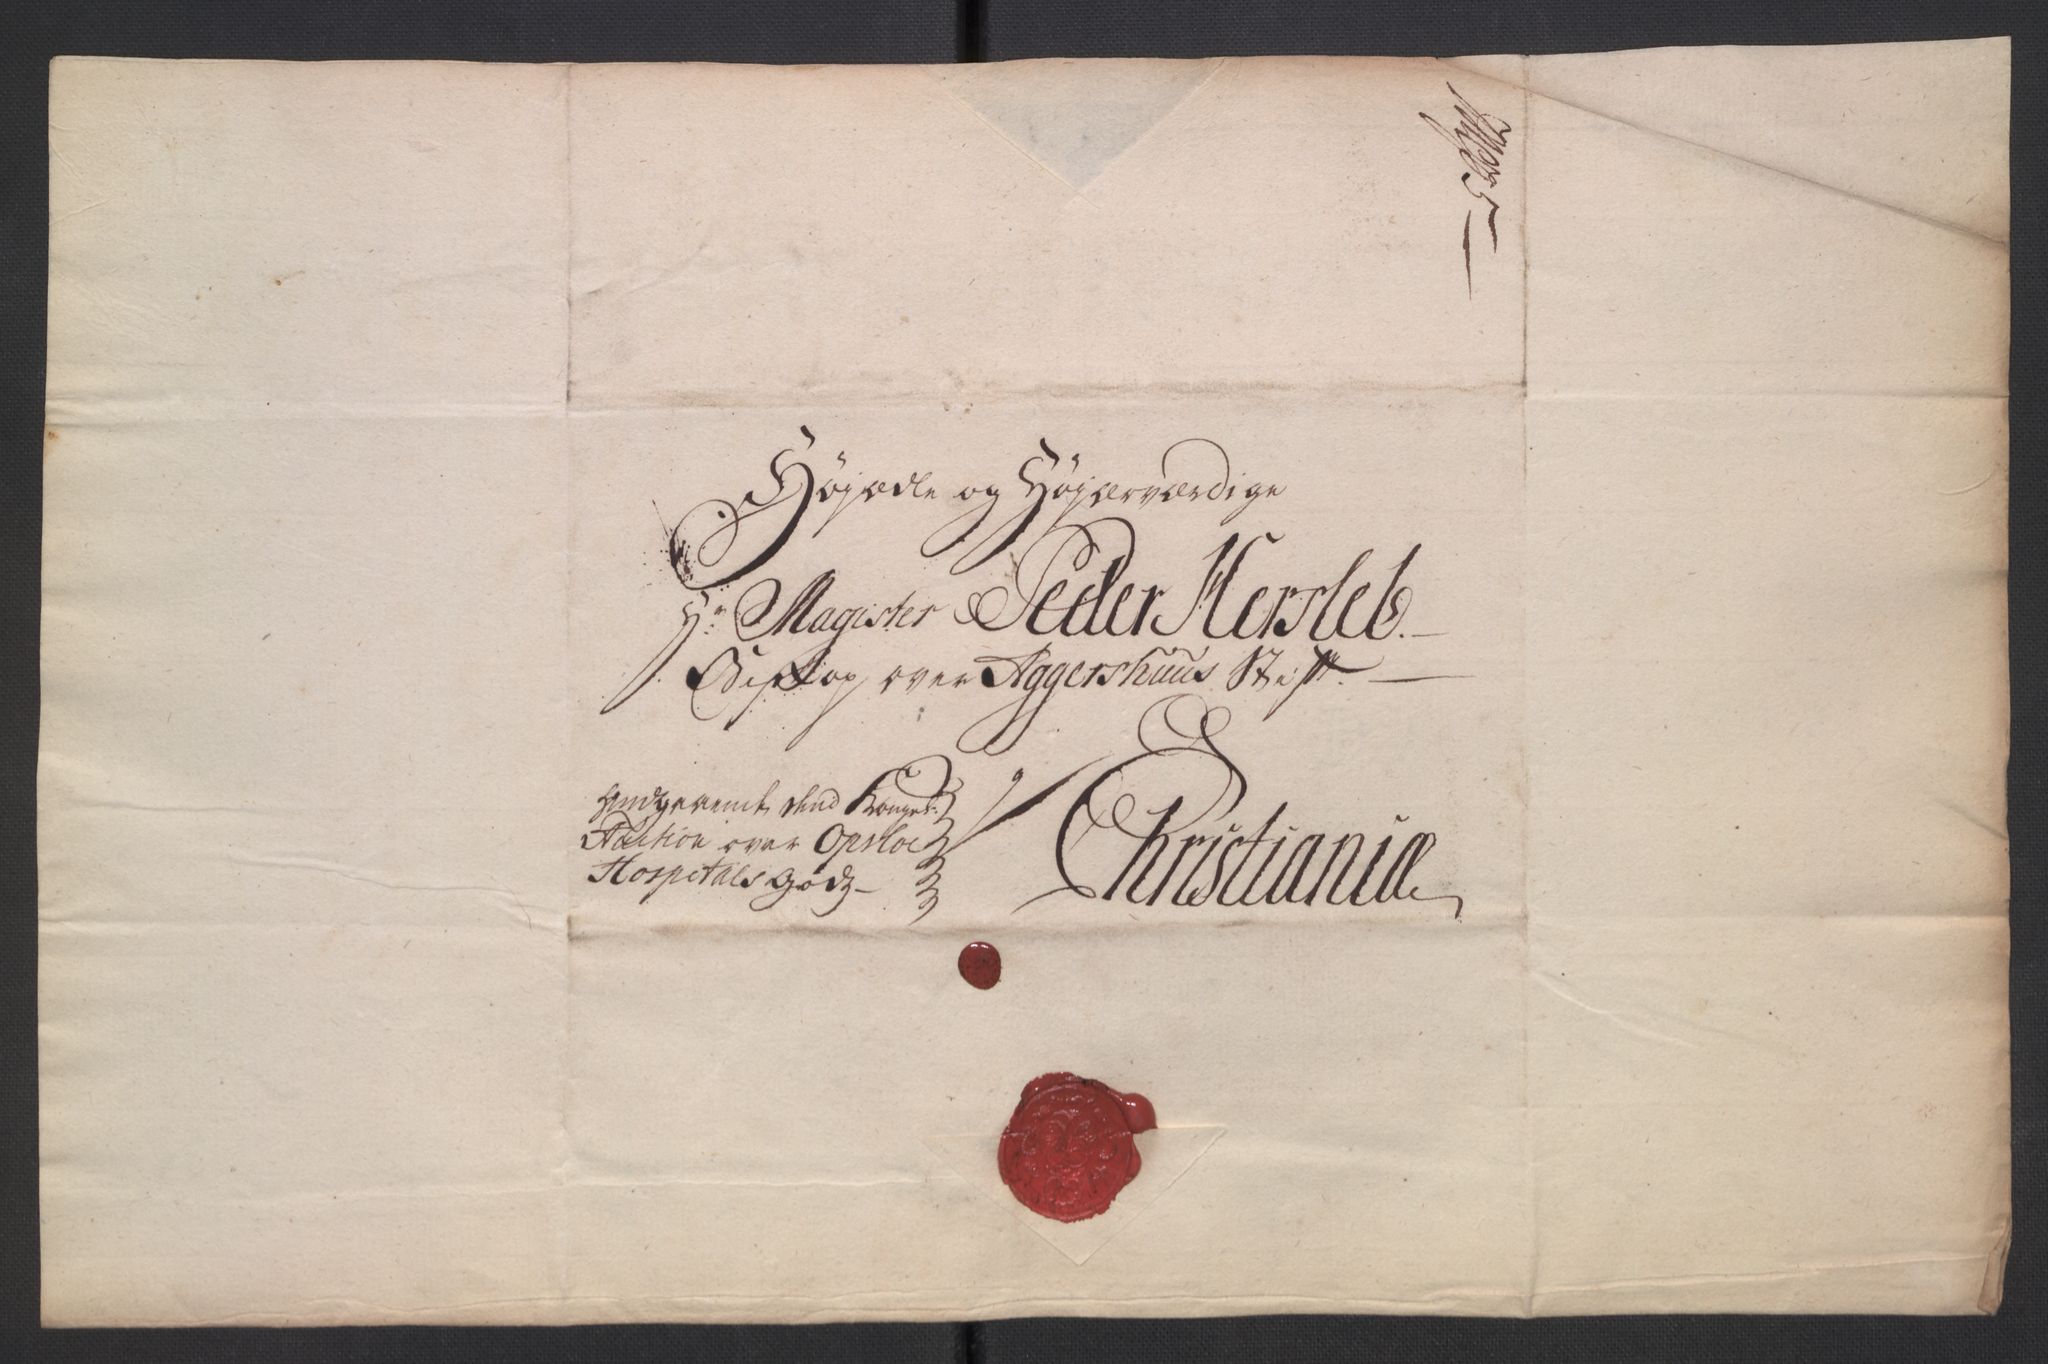 Høyædle og Høyærværdige
Hr Magister Peder Hersleb.
Biskop over Aggershuus Stift.
Christianiæ
Hudgevemt dend Kongel:
Auction over Opsloe
Hospitals Godz